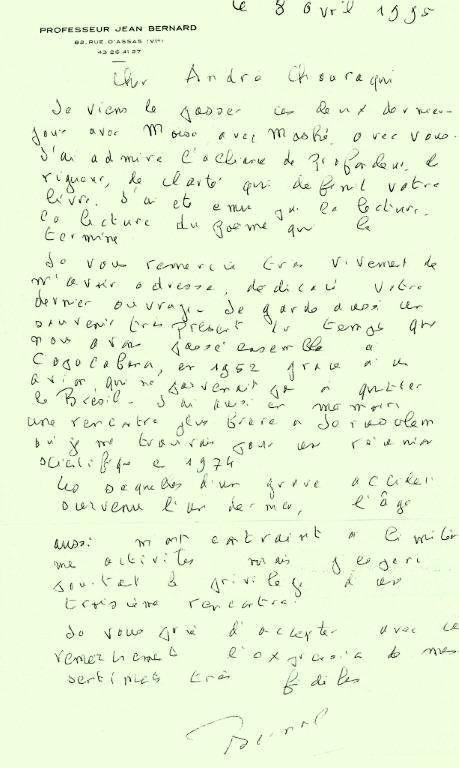 le 8 avril 1995
PROFESSEUR JEAN BERNARD
82, RUE D'ASSAS (VIe)
43 26 41 27
Cher André Chouraqui
Je viens de passer ces deux derniers
jours avec Moïse avec Moshé, avec vous.
J'ai admiré l'alliance de profondeur, de
rigueur, de clarté qui définit votre
livre. J'ai été ému par la lecture,
la lecture du poème qui le
termine
Je vous remercie très vivement de
m'avoir adressé, dédicacé votre
dernier ouvrage. Je garde aussi un
souvenir très présent du temps que
nous avons passé ensemble à
Copacabana, en 1952 grâce à un
avion qui ne parvenait pas à quitter
le Brésil. J'ai aussi en mémoire
une rencontre plus brève à Jerusalem
où je me trouvais pour une réunion
scientifique en 1974
Les séquelles d'un grave accident
survenu l'an dernier, l'âge
aussi m'ont contraint à limiter
mes activités mais j'espère
le privilège d'une
troisième rencontre.
Je vous prie d'accepter avec ces
remerciements l'expression de mes
sentiments très fidèles
Bernard